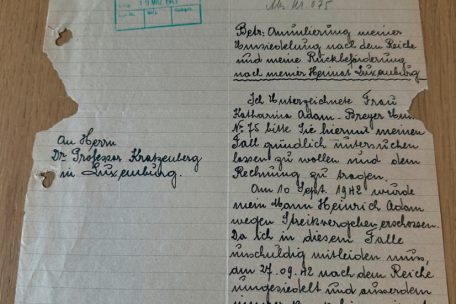 Nr. 675
Betr: Annulierung meiner
Umsiedelung nach dem Reiche
und meine Rückbeförderung
nach meiner Heimat Luxemburg
Ich Unterzeichnete Frau
Katharina Adam-Breyer
Nr 75 bitte Sie hiermit meinen
Fall gründlich untersuchen
lassen zu wollen und dem
Rechnung zu tragen.
An Herrn
Dr Professor Kratzenberg
in Luxemburg.
Am 10 Sept. 1942 wurde
mein Mann Heinrich Adam
wegen Streikvergehen erschossen.
Da ich in diesem Falle
unschuldig mitleiden muss,
am 27.09.42 nach dem Reiche
umgesiedelt und ausserdem